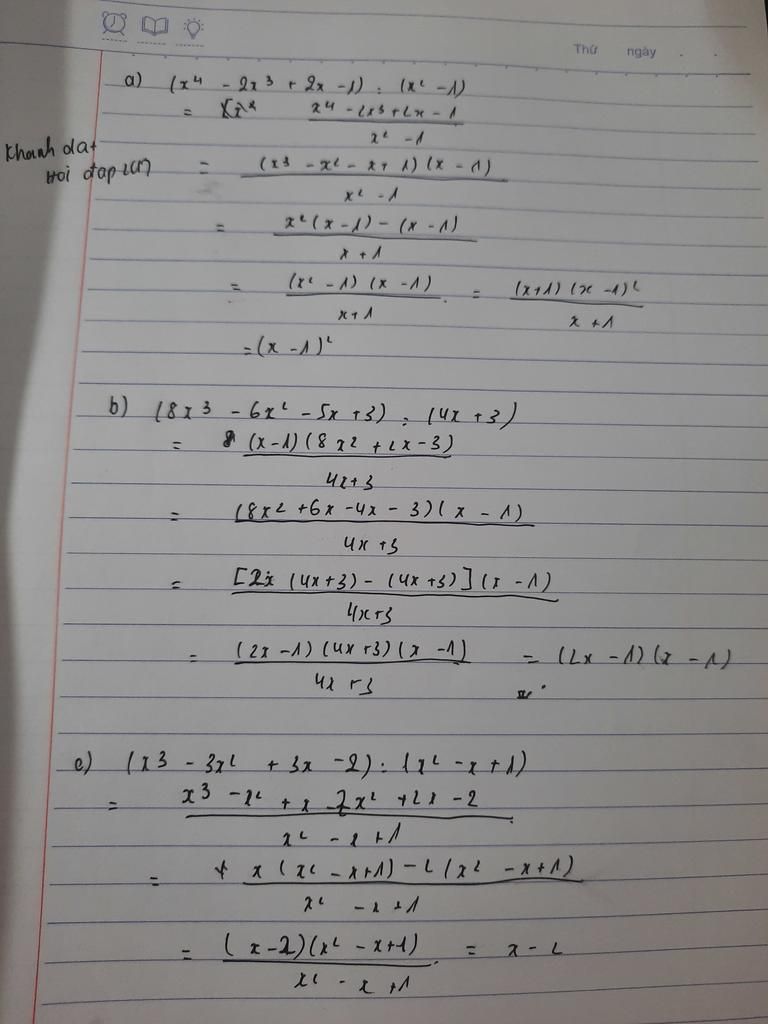 Thứ ngày . .
a) (x⁴ - 2x³ + 2x - 1) : (x² - 1)
= (x⁴ - 2x³ + 2x - 1)/(x² - 1)
Khanh dat
= ((x³ - x² - x + 1)(x - 1))/(x² - 1)
= (x²(x - 1) - (x - 1))/(x + 1)
= ((x² - 1)(x - 1))/(x + 1) = ((x + 1)(x - 1)²)/(x + 1)
= (x - 1)²
b) (8x³ - 6x² - 5x + 3) : (4x + 3)
= ((x - 1)(8x² + 2x - 3))/(4x + 3)
= ((8x² + 6x - 4x - 3)(x - 1))/(4x + 3)
= ([2x(4x + 3) - (4x + 3)](x - 1))/(4x + 3)
= ((2x - 1)(4x + 3)(x - 1))/(4x + 3) = (2x - 1)(x - 1)
c) (x³ - 3x² + 3x - 2) : (x² - x + 1)
= (x³ - x² + x - 2x² + 2x - 2)/(x² - x + 1)
= (x(x² - x + 1) - 2(x² - x + 1))/(x² - x + 1)
= ((x - 2)(x² - x + 1))/(x² - x + 1) = x - 2